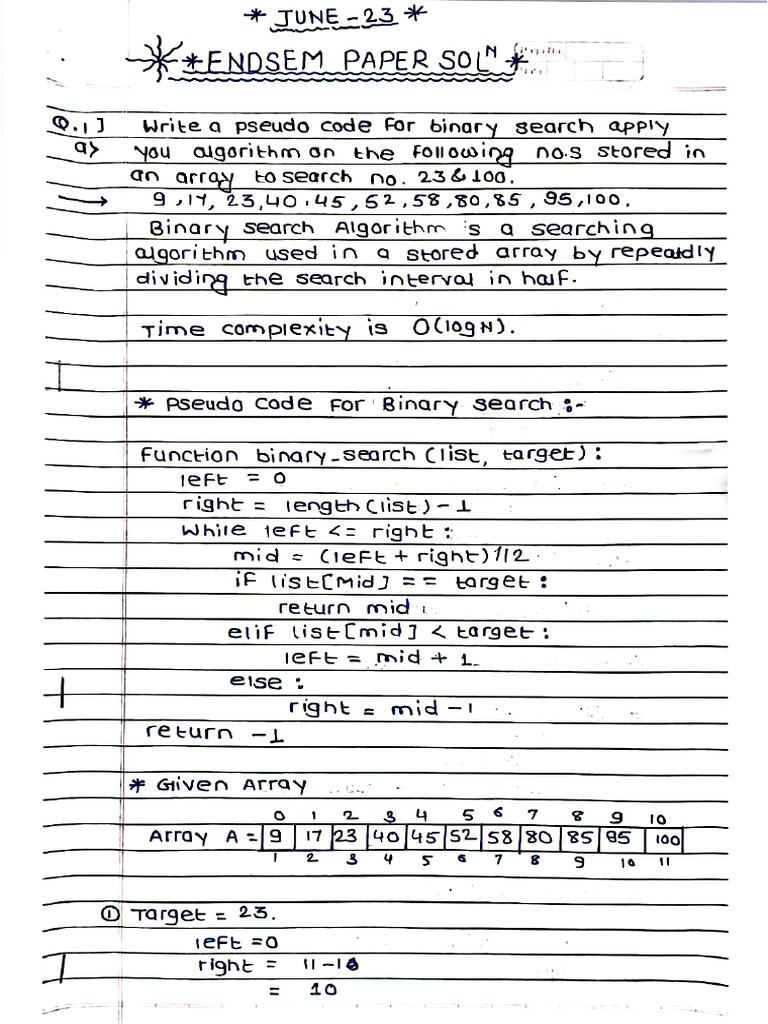 * JUNE-23 *
* ENDSEM PAPER SOLᴺ *
Q.1] Write a pseudo code for binary search apply
a) you algorithm on the following no.s stored in
an array to search no. 23 & 100.
→ 9, 17, 23, 40, 45, 52, 58, 80, 85, 95, 100.
Binary search Algorithm is a searching
algorithm used in a stored array by repeatdly
dividing the search interval in half.
Time complexity is O(logN).
* Pseudo code for Binary search :-
Function binary_search (list, target) :
left = 0
right = length(list) - 1
While left <= right :
mid = (left + right) // 2
if list[Mid] == target :
return mid
elif list[mid] < target :
left = mid + 1
else :
right = mid - 1
return -1
* Given Array
0 1 2 3 4 5 6 7 8 9 10
Array A = 9 17 23 40 45 52 58 80 85 95 100
1 2 3 4 5 6 7 8 9 10 11
① Target = 23.
left = 0
right = 11-1
= 10